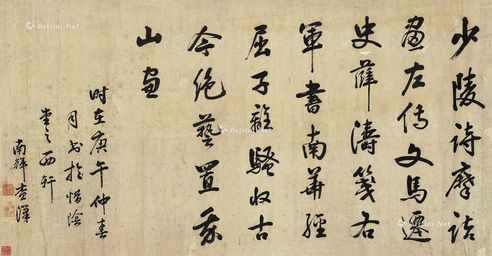 少陵詩摩詰
畫左傳文馬遷
史薛濤箋右
軍書南華經
屈子離騷收古
今絕藝置我
山窓
時在庚午仲春
月書於惜陰
堂之西軒
南
Artron.Net
Artron.Net
Artron.Net